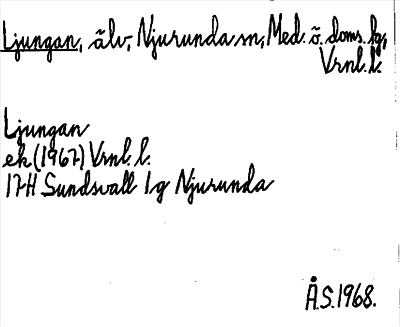 Ljungan, älv, Njurunda sn, Med. ö. doms. kg,
Vrnl. l.
Ljungan
ek (1967) Vrnl. l.
17H Sundsvall 1g Njurunda
Å.S. 1968.